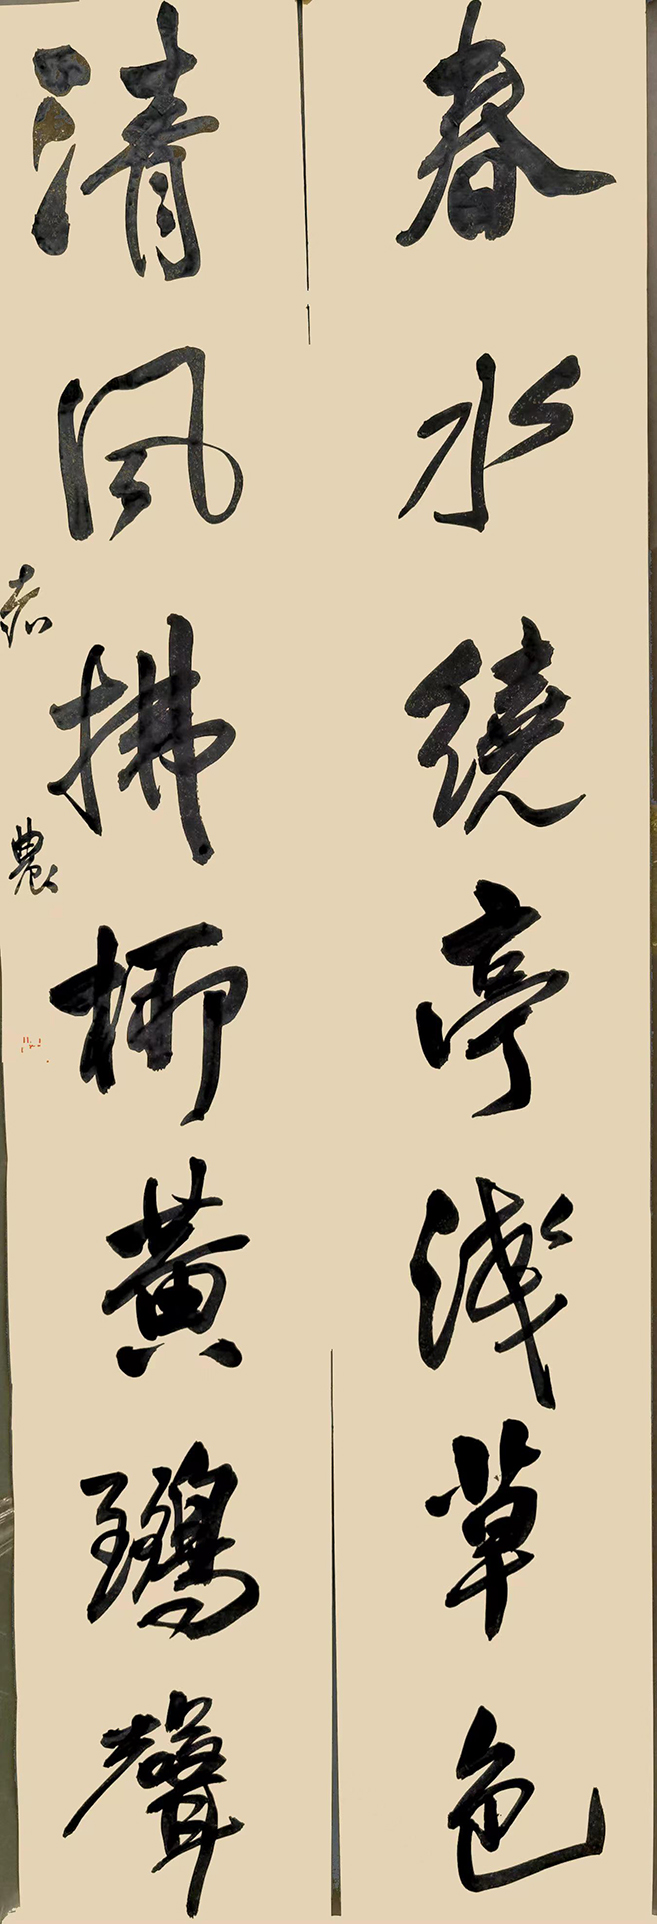 春水繞亭淺草色
清風拂柳黃鸝聲
農